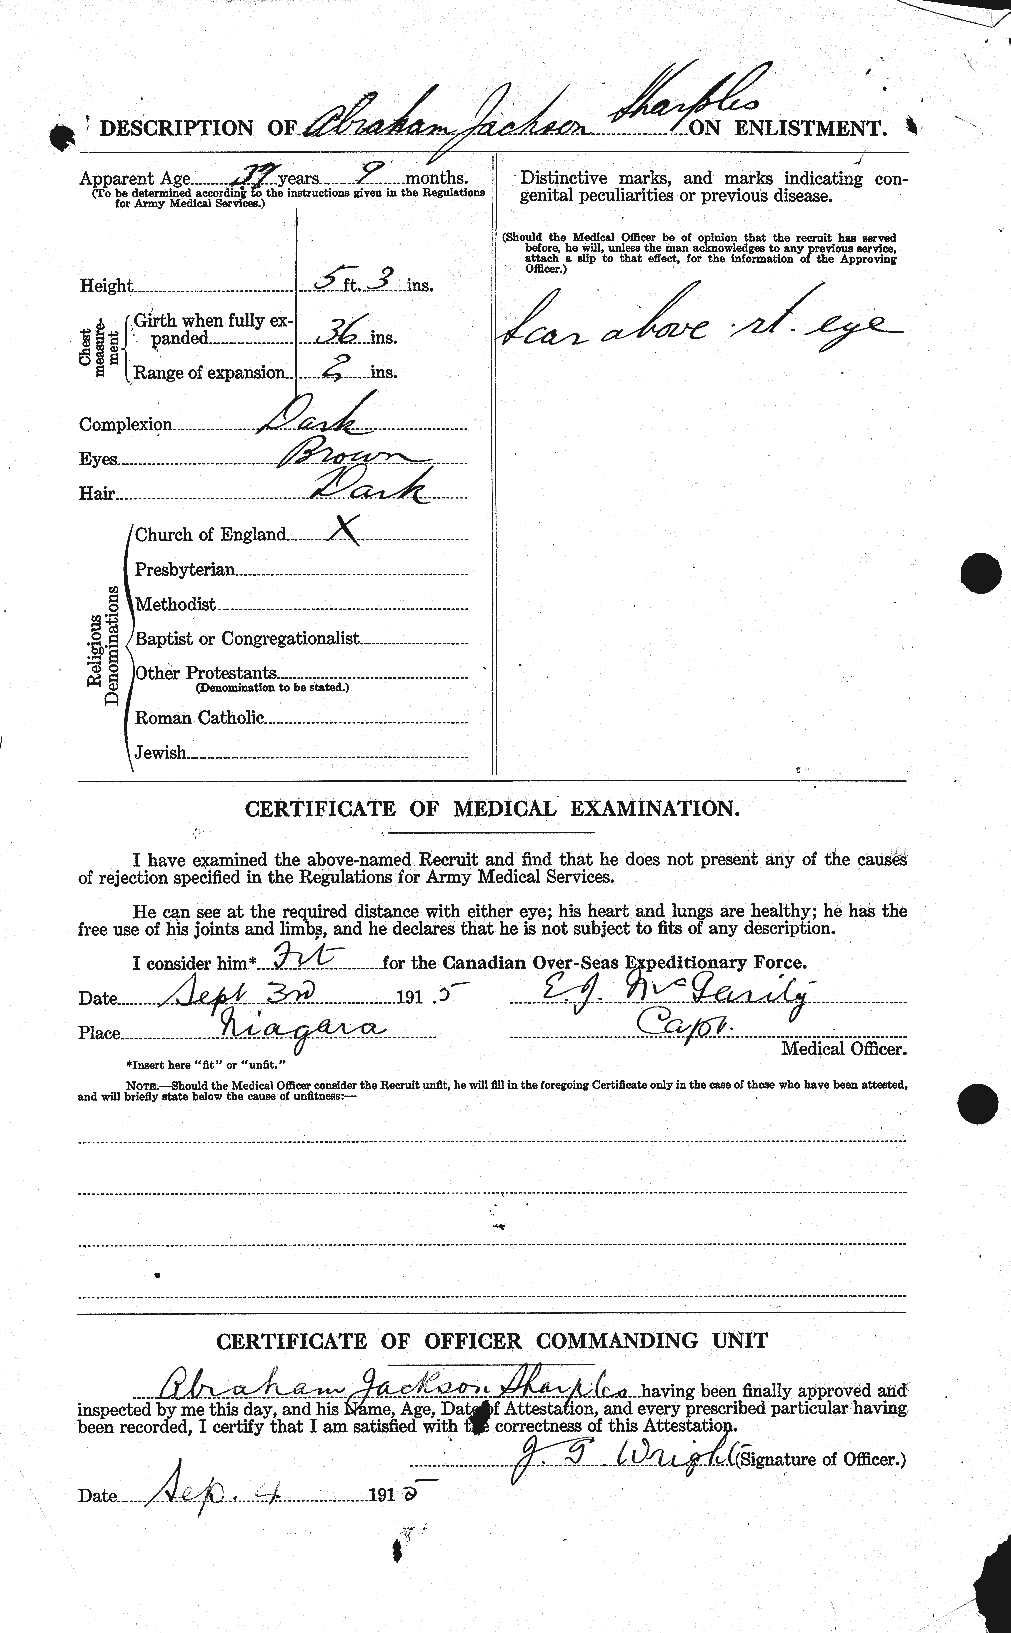 DESCRIPTION OF Abraham Jackson Sharples ON ENLISTMENT.
Apparent Age 39 years 9 months.
(To be determined according to the instructions given in the Regulations
for Army Medical Services.)
Height 5 ft. 3 ins.
Chest measurement
Girth when fully ex-
panded 36 ins.
Range of expansion 2 ins.
Complexion Dark
Eyes Brown
Hair Dark
Religious Denominations
Church of England X
Presbyterian
Methodist
Baptist or Congregationalist
Other Protestants
(Denomination to be stated.)
Roman Catholic
Jewish
Distinctive marks, and marks indicating con-
genital peculiarities or previous disease.
(Should the Medical Officer be of opinion that the recruit has served
before, he will, unless the man acknowledges to any previous service,
attach a slip to that effect, for the information of the Approving
Officer.)
Scar above rt. eye
CERTIFICATE OF MEDICAL EXAMINATION.
I have examined the above-named Recruit and find that he does not present any of the causes
of rejection specified in the Regulations for Army Medical Services.
He can see at the required distance with either eye; his heart and lungs are healthy; he has the
free use of his joints and limbs, and he declares that he is not subject to fits of any description.
I consider him* Fit for the Canadian Over-Seas Expeditionary Force.
Date Sept 3rd 1915 E.J. McGarity
Place Niagara Capt.
Medical Officer.
*Insert here "fit" or "unfit."
NOTE.—Should the Medical Officer consider the Recruit unfit, he will fill in the foregoing Certificate only in the case of those who have been attested,
and will briefly state below the cause of unfitness:—
CERTIFICATE OF OFFICER COMMANDING UNIT
Abraham Jackson Sharples having been finally approved and
inspected by me this day, and his Name, Age, Date of Attestation, and every prescribed particular having
been recorded, I certify that I am satisfied with the correctness of this Attestation.
J. G. Wright (Signature of Officer.)
Date Sep. 4 1915